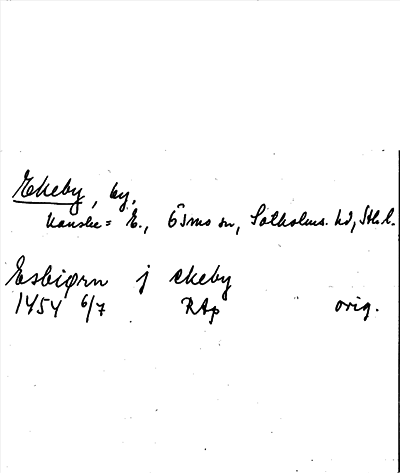 Ekeby, by,
kanske = E., Ösmo sn, Sotholms. hd, Sthl.l.
Esbiørn j ekeby
1454 6/7 RAp orig.